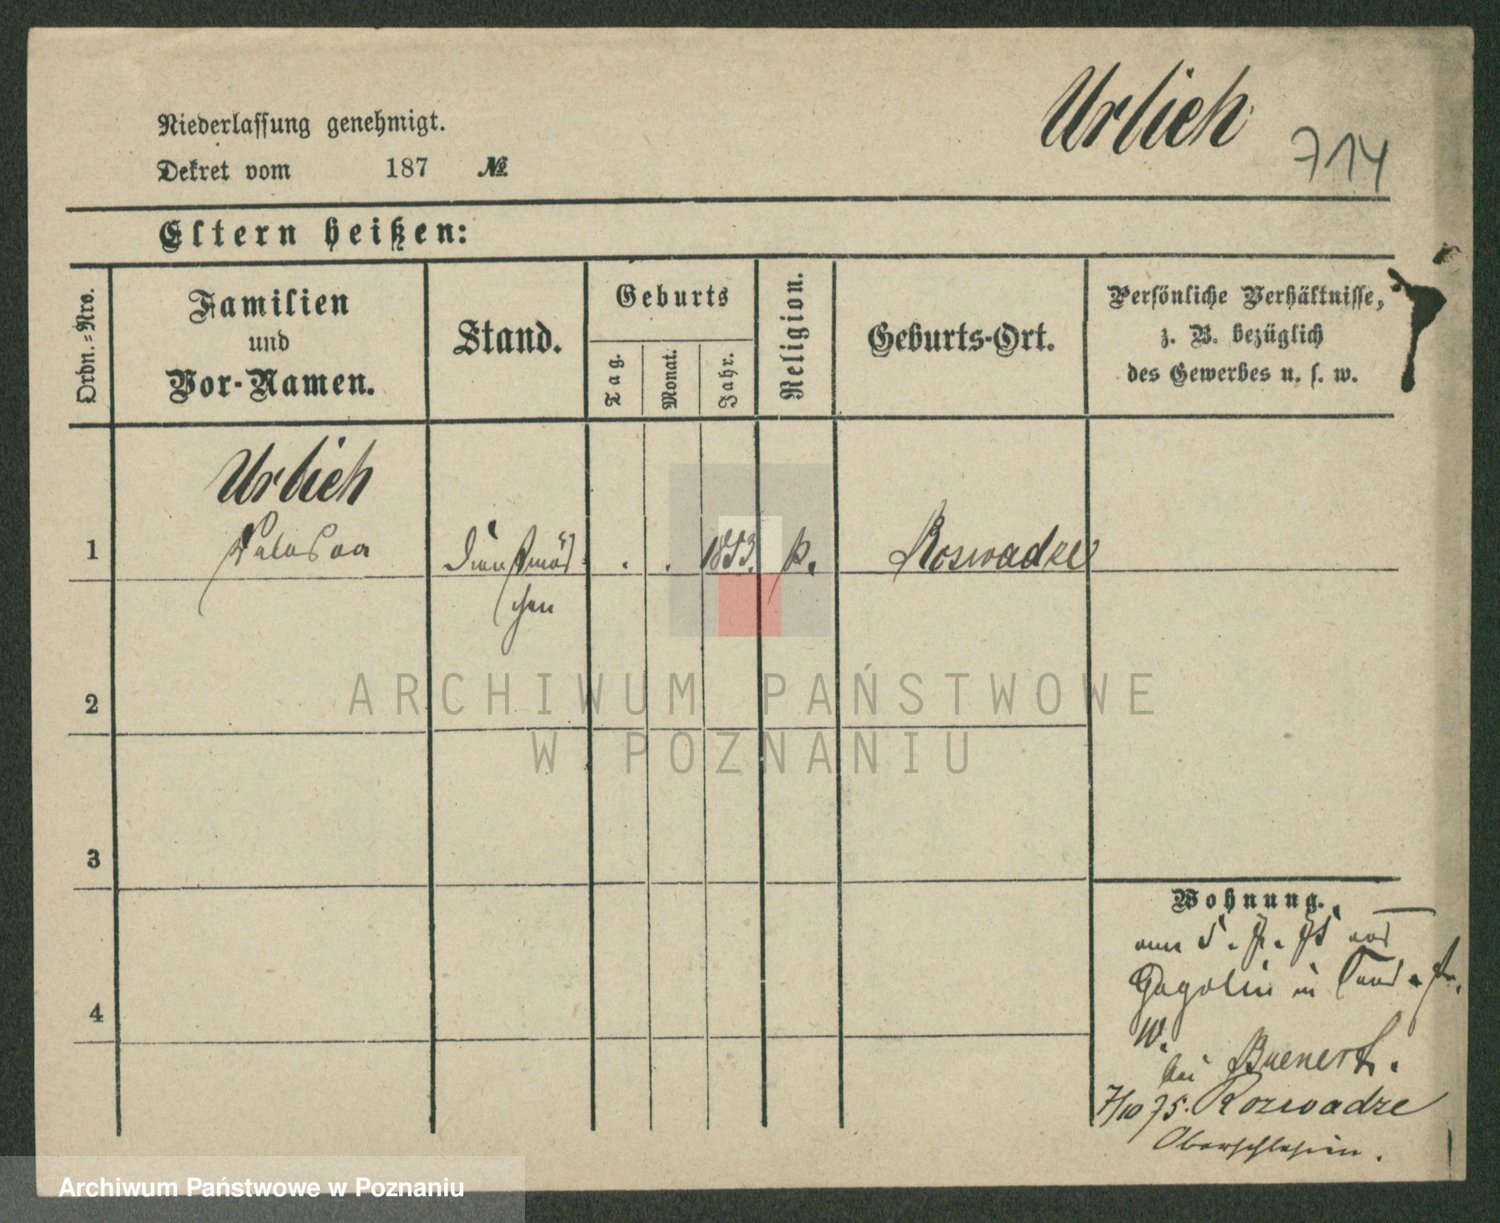 Urlich
714
Niederlassung genehmigt.
Dekret vom 187 №
Eltern heißen:
Ordn.-Nro.
Familien
und
Vor-Namen.
Stand.
Geburts
Tag.
Monat.
Jahr.
Religion.
Geburts-Ort.
Persönliche Verhältnisse,
z. B. bezüglich
des Gewerbes u. s. w.
Urlich
1 Dienstmäd 1853. k. Roswadze
chen
2
3
4
Wohnung.
aus
Gogolin in
W.
bei Buenert.
7/10 75. Roswadze
Oberschlesien.
ARCHIWUM PAŃSTWOWE
W POZNANIU
Archiwum Państwowe w Poznaniu